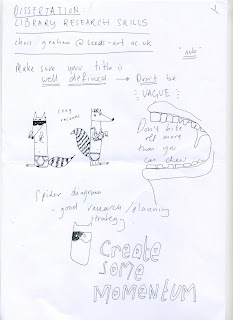 DISSERTATION:
LIBRARY RESEARCH SKILLS
chris.graham@leeds-art.ac.uk
Make sure your title is
well defined → Don't be
VAGUE
cosy
racoons
Don't bite
off more
than you
can chew
Spider diagram
- good research/planning
strategy
Create
Some
MOMENTUM